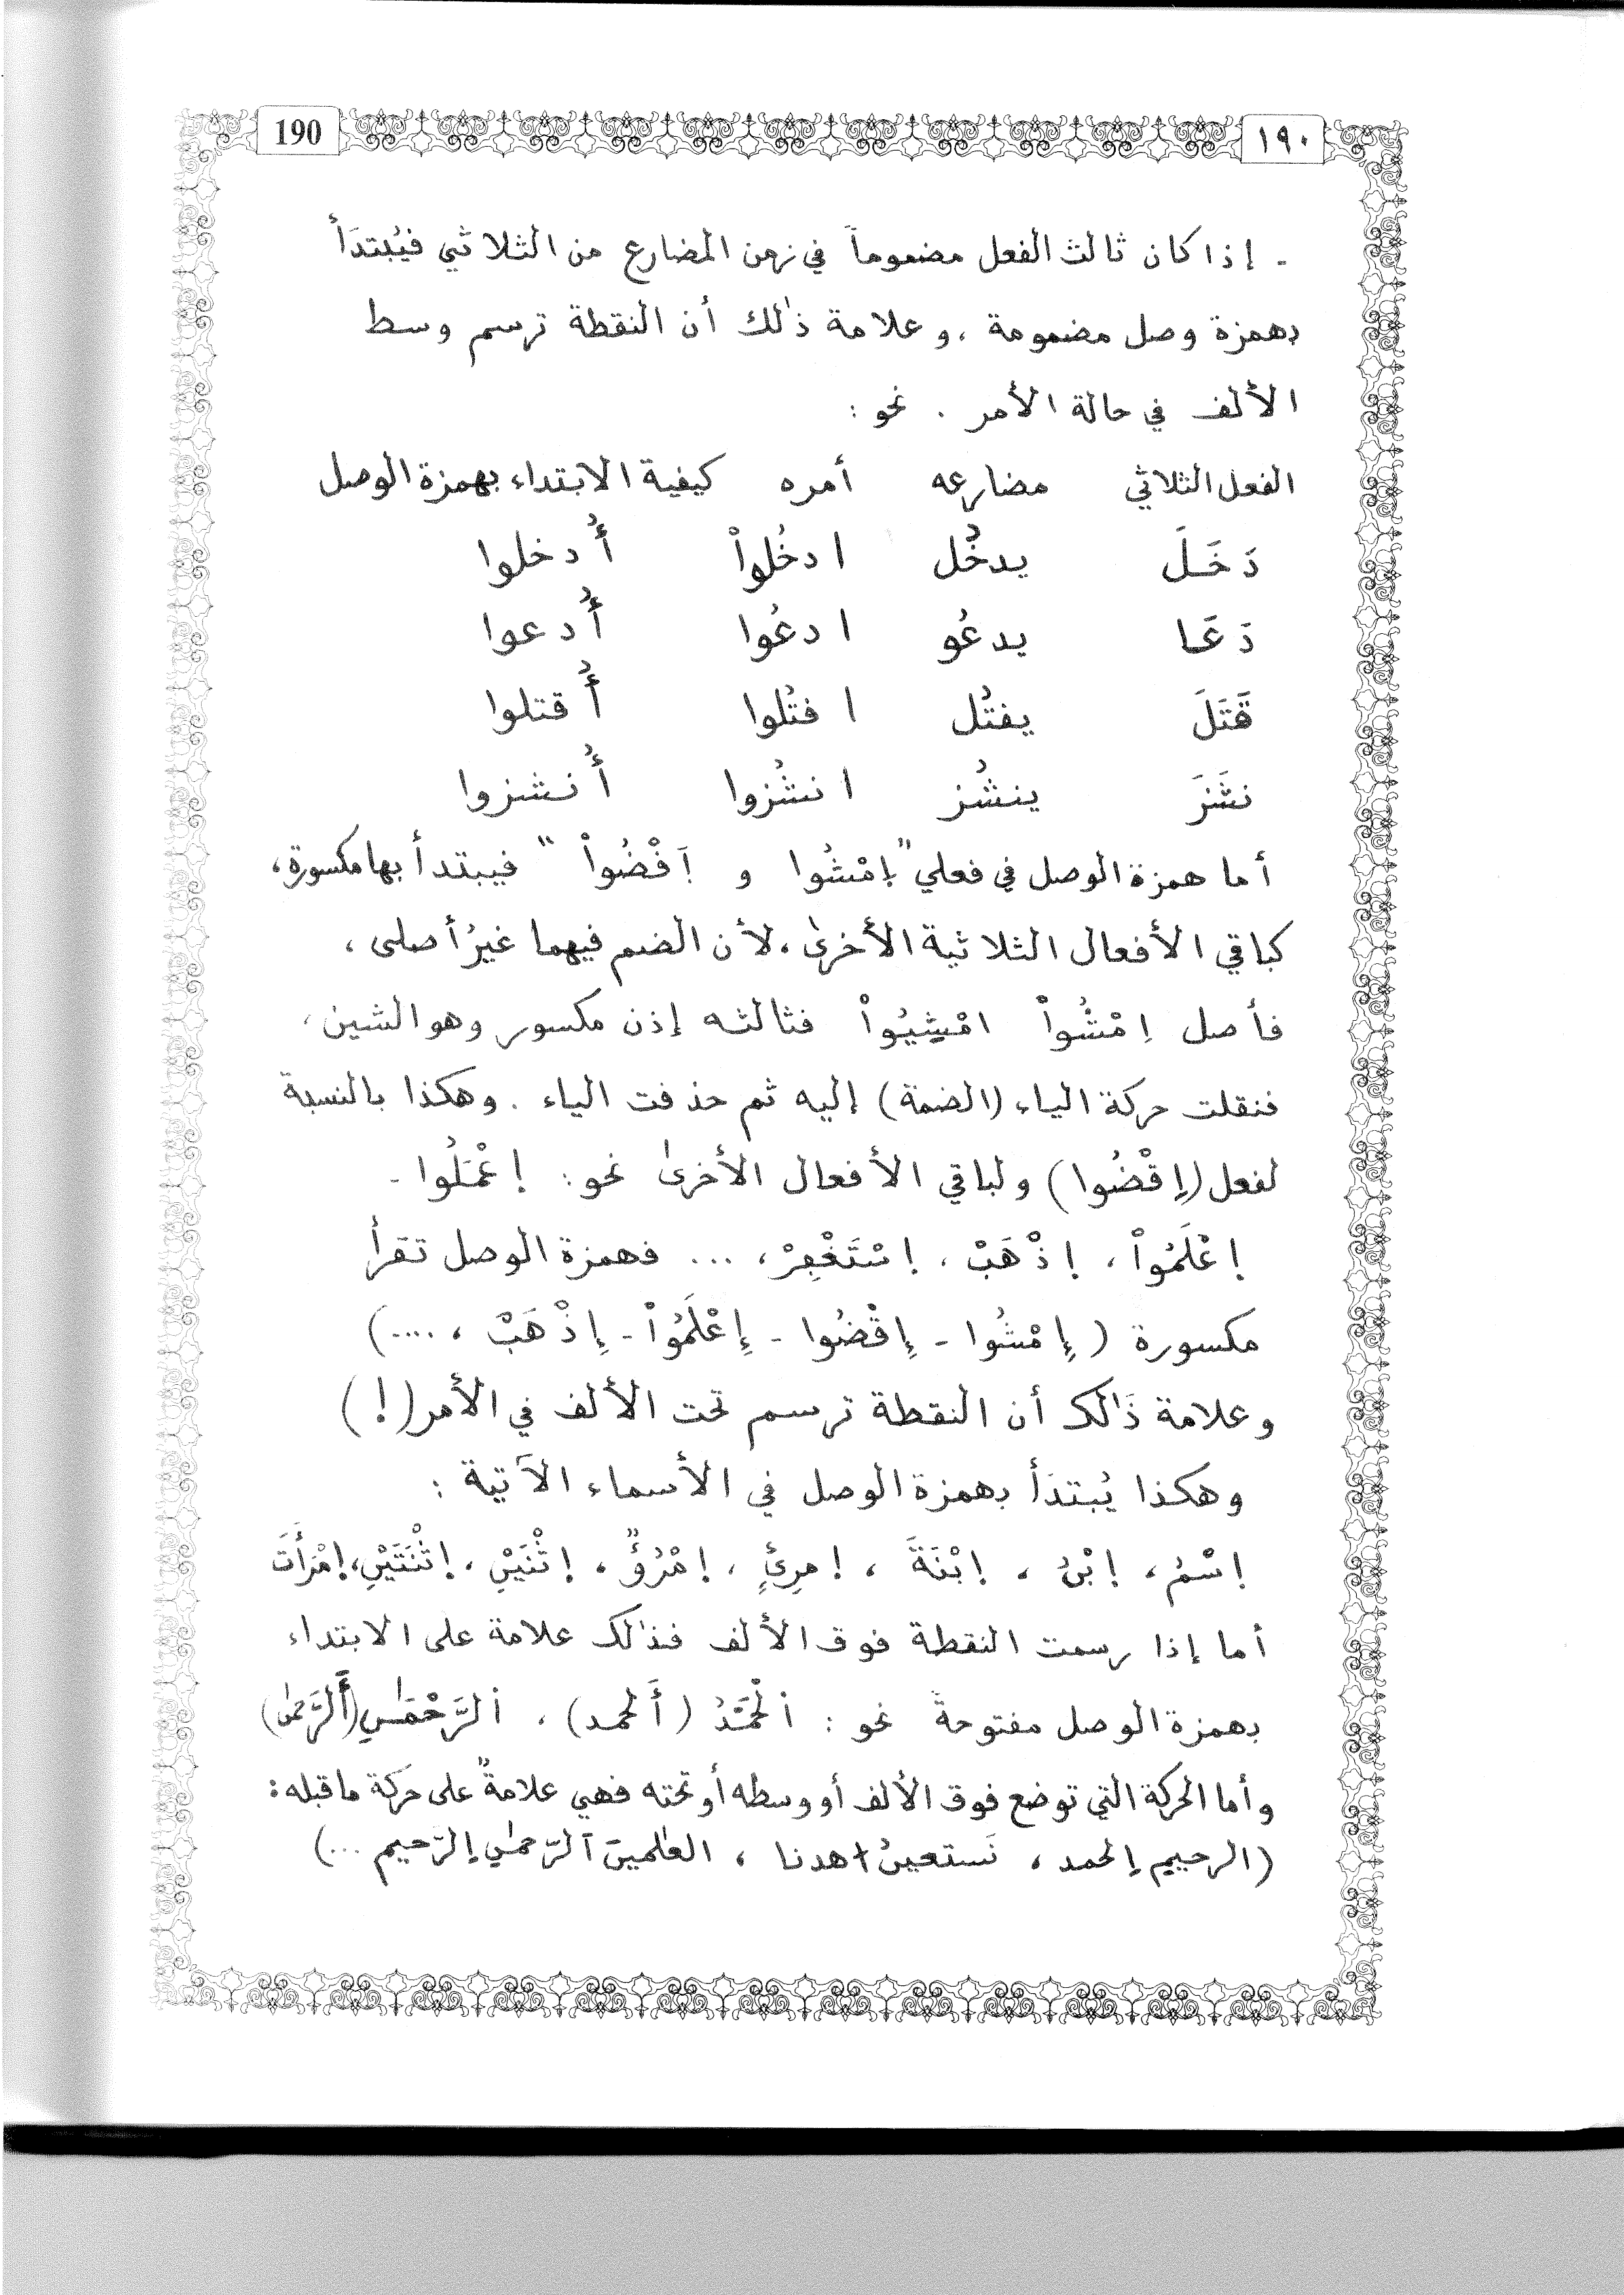 190 ١٩٠
- إذا كان ثالث الفعل مضموماً في زمن المضارع من الثلاثي فيُبتدَأ
بهمزة وصل مضمومة ، وعلامة ذٰلك أن النقطة ترسم وسط
الألف في حالة الأمر . نحو :
الفعل الثلاثي مضارعه أمره كيفية الابتداء بهمزة الوصل
دَخَلَ يدخُل ادخُلواْ أُدخلوا
دَعَا يدعُو ادعُوا أُدعوا
قَتَلَ يقتُل اقتُلوا أُقتلوا
نشَزَ ينشُز انشُزوا أُنشزوا
أما همزة الوصل في فعلي " إمْشُوا و اَقْضُواْ " فيبتدأ بها مكسورة ،
كباقي الأفعال الثلاثية الأخرىٰ ، لأن الضم فيهما غيرُ أصلى ،
فأصل اِمْشُواْ امْشِيُواْ فثالثه إذن مكسور وهو الشين ،
فنقلت حركة الياء (الضمة) إليه ثم حذفت الياء . وهكذا بالنسبة
لفعل (اِقْضُوا) ولباقي الأفعال الأخرىٰ نحو : اِعْمَلُوا -
اِعْلَمُواْ ، اِذْهَبْ ، اِسْتَغْفِرْ ، ... فهمزة الوصل تقرأ
مكسورة ( إِمْشُوا - إِقْضُوا - إِعْلَمُواْ - إِذْهَبْ ، ....)
وعلامة ذَٰلك أن النقطة ترسم تحت الألف في الأمر (!)
وهكذا يُبتدَأ بهمزة الوصل في الأسماء الآتية :
اِسْمُ ، اِبْنُ ، اِبْنَةَ ، اِمرِئٍ ، اِمْرُؤٌ ، اِثْنَيْنِ ، اِثْنَتَيْنِ ، اِمْرَأَتَ
أما إذا رسمت النقطة فوق الألف فذٰلك علامة على الابتداء
بهمزة الوصل مفتوحةً نحو : اَلْحَمْدُ (أَلحمد) ، اَلرَّحْمَٰنِ (أَلرَّحمٰن)
وأما الحركة التي توضع فوق الألف أو وسطه أو تحته فهي علامةٌ على حركة ما قبله :
(الرحيمِ اِلحمد ، نَستعينُ اهدنا ، العٰلمينَ اَلرّحمٰنِ اِلرّحيم ...)